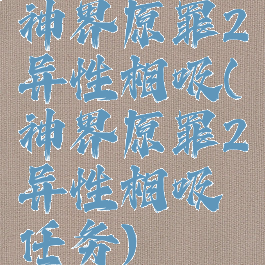 神界原罪2
异性相吸(
神界原罪2
异性相吸
任务)